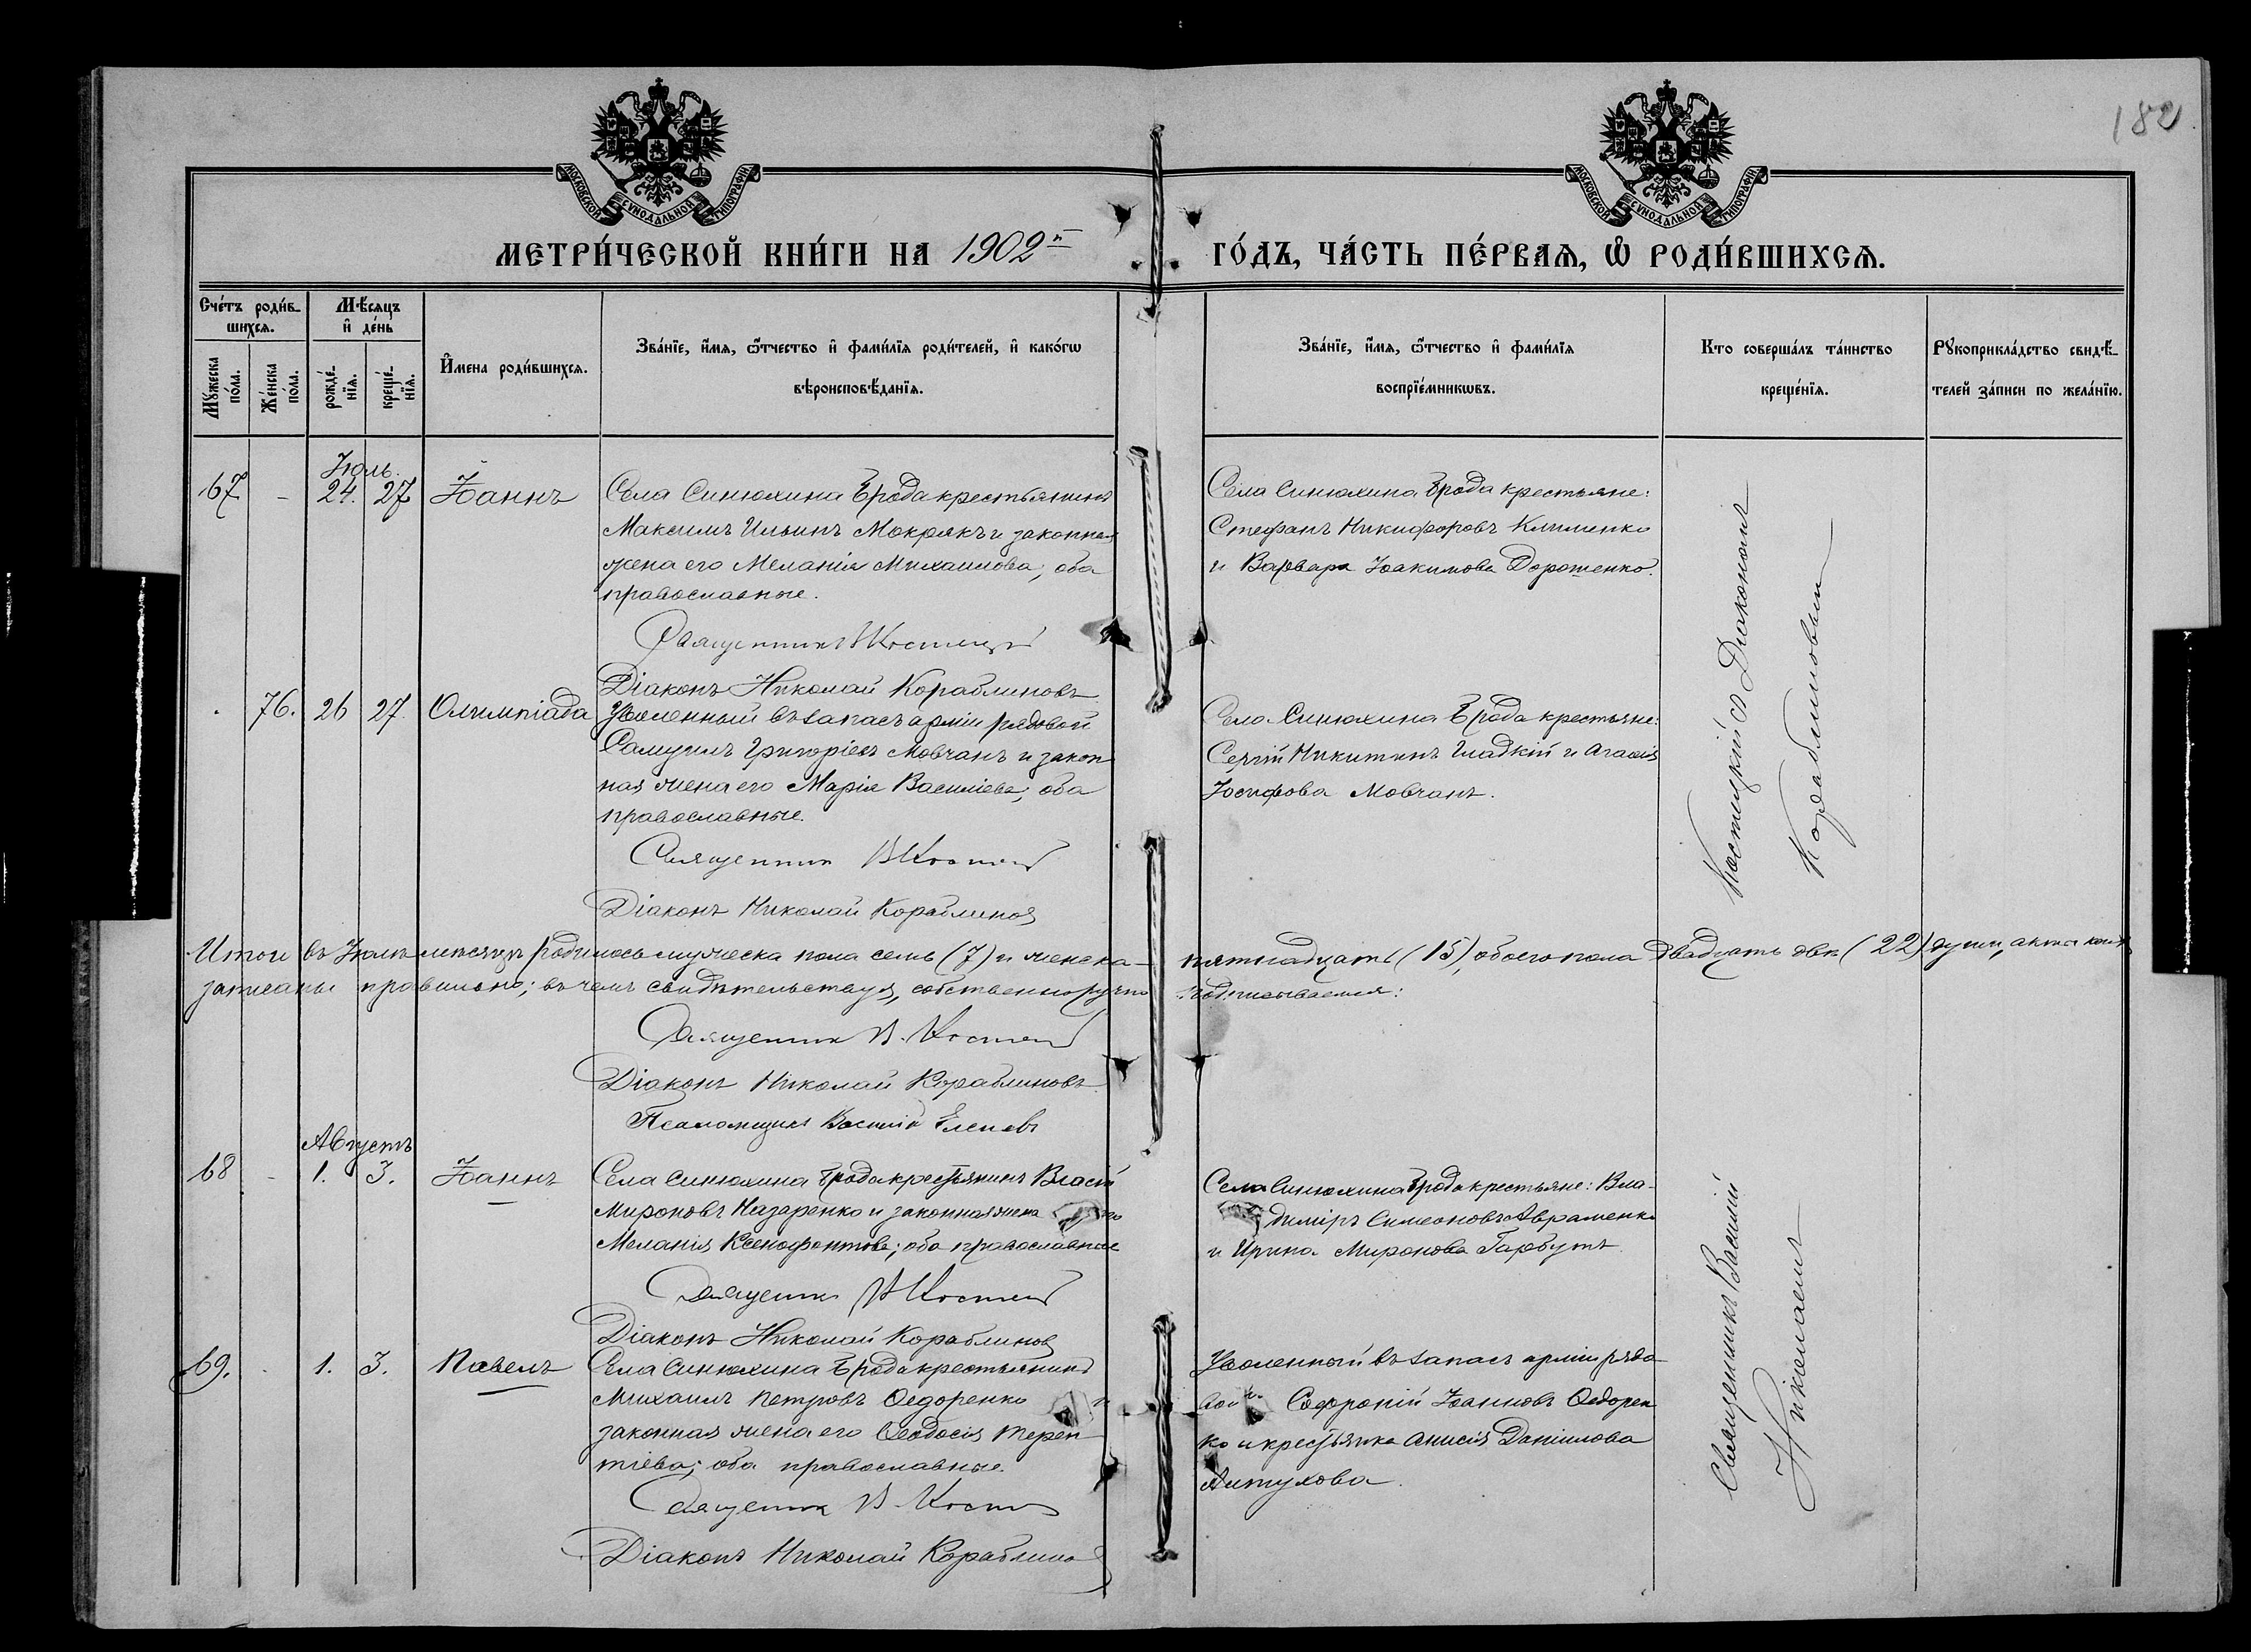 182
МОСКОВСКОЙ СУНОДАЛЬНОЙ ТИПОГРАФІИ
МОСКОВСКОЙ СУНОДАЛЬНОЙ ТИПОГРАФІИ
МЕТРИ́ЧЕСКОЙ КНИ́ГИ НА 1902й ГО́ДЪ, ЧА́СТЬ ПЕ́РВАѦ, Ѡ҆ РОДИ́ВШИХСѦ.
Сче́тъ роди́в-
шихсѧ.
Мꙋжеска по́ла.
Же́нска по́ла.
Мѣ́сѧцъ
и҆ де́нь
рожде́-
нїѧ.
креще́-
нїѧ.
И҆мена роди́вшихсѧ.
Зва́нїе, и҆́мѧ, ѻ҆́тчество и҆ фами́лїѧ роди́телей, и҆ како́гѡ
вѣроисповѣ́данїѧ.
Зва́нїе, и҆́мѧ, ѻ҆́тчество и҆ фами́лїѧ
воспрїе́мникѡвъ.
Кто соверша́лъ та́инство
креще́нїѧ.
Рꙋкоприкла́дство свидѣ́-
телей за́писи по жела́нїю.
Іюль.
67 - 24. 27 Іоаннъ
Села Синюхина Брода крестьянинъ
Максимъ Ильинъ Мокрякъ и законная
жена его Меланія Михаилова; оба
православные.
Священникъ В Костецкій
Діаконъ Николай Кораблиновъ
Села Синюхина Брода крестьяне:
Стефанъ Никифоровъ Клименко
и Варвара Іоакимова Дорошенко.
76. 26 27. Олимпіада
Уволенный въ запасъ арміи рядовой
Самуилъ Григоріевъ Мовчанъ и закон
ная жена его Марія Василіева; оба
православные.
Священникъ В Костец
Діаконъ Николай Кораблинов
Села Синюхина Брода крестьяне:
Сергій Никитинъ Гладкій и Агафія
Іосифова Мовчанъ.
Костецкій съ Діакономъ
Кораблиновым
Итого въ Іюлѣ мѣсяцѣ родилось мужеска пола семь (7) и женска - пятнадцать (15), обоего пола двадцать двѣ (22) души, акты коихъ
записаны правильно; въ чемъ свидѣтельствуя, собственноручно подписываемся:
Священник В. Костец
Діаконъ Николай Кораблиновъ
Псаломщикъ Василій
Августъ
68 - 1. 3. Іоаннъ
Села Синюхина Брода крестьянинъ Власій
Мироновъ Назаренко и законная жена его
Меланія Ксенофонтова; оба православные
Священник В Костец
Діаконъ Николай Кораблинов
Села Синюхина Брода крестьяне: Вла-
диміръ Симеоновъ Авраменко
и Ирина Миронова Гарбузъ.
69. 1. 3. Павелъ
Села Синюхина Брода крестьянинъ
Михаилъ Петровъ Ѳедоренко и
законная жена его Ѳеодосія Терен-
тіева; оба православные.
Священник В. Костец
Діаконъ Николай Кораблино
Уволенный въ запасъ арміи рядо-
вой Софроній Іоанновъ Ѳедорен
ко и крестьянка Анисія Даніилова
Алтухова.
Священникъ Василій